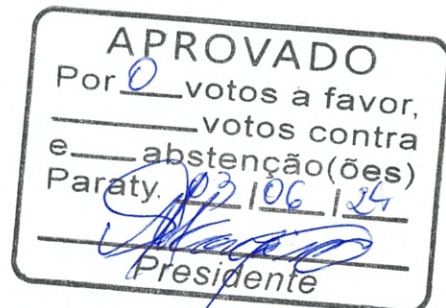 APROVADO
Por 0 votos a favor,
votos contra
e abstenção(ões)
Paraty, 03 | 06 | 24
Presidente